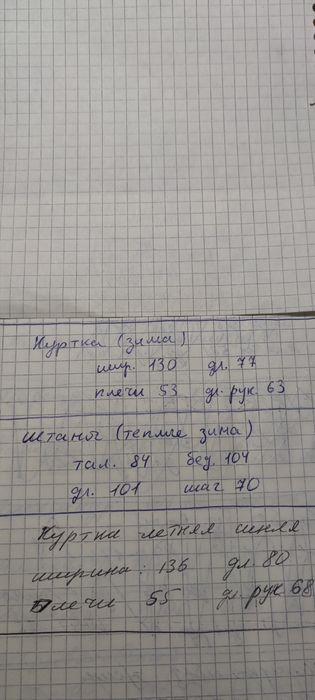 Куртка (зима)
шир. 130 дл. 77
плечи 53 дл. рук. 63
Штаны (теплые зима)
тал. 84 бед. 104
дл. 101 шаг 70
Куртка летняя синяя
ширина: 136 дл. 80
плечи 55 дл. рук 68